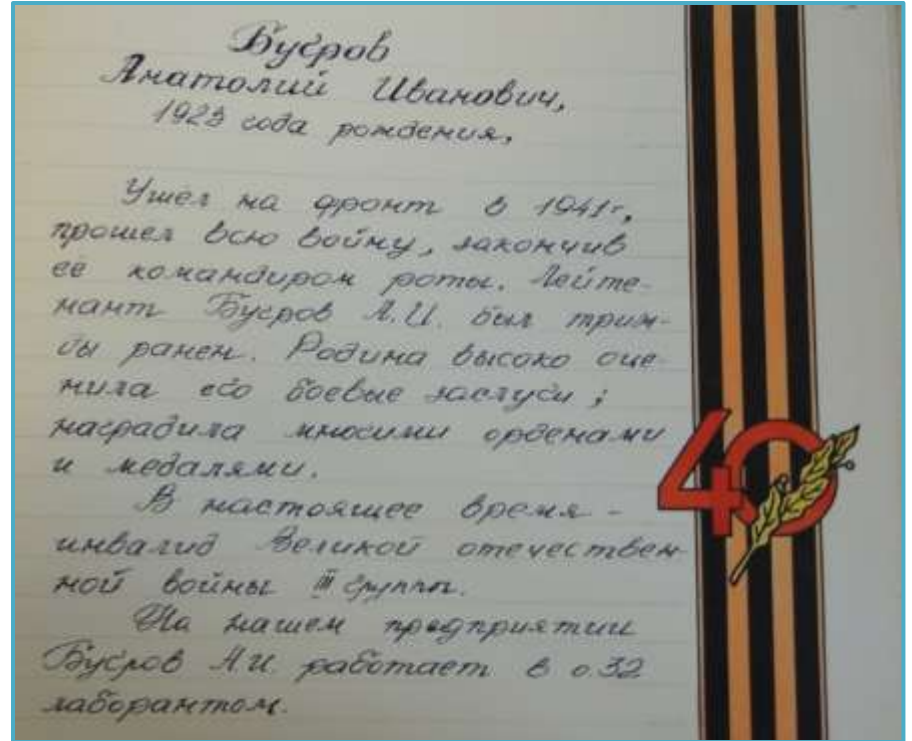 Бугров
Анатолий Иванович,
1923 года рождения,
Ушел на фронт в 1941г,
прошел всю войну, закончив
её командиром роты. Лейте-
нант Бугров А.И. был триж-
ды ранен. Родина высоко оце-
нила его боевые заслуги;
наградила многими орденами
и медалями.
В настоящее время -
инвалид Великой отечествен-
ной войны III группы.
На нашем предприятии
Бугров А.И. работает в о.32
лаборантом.
40